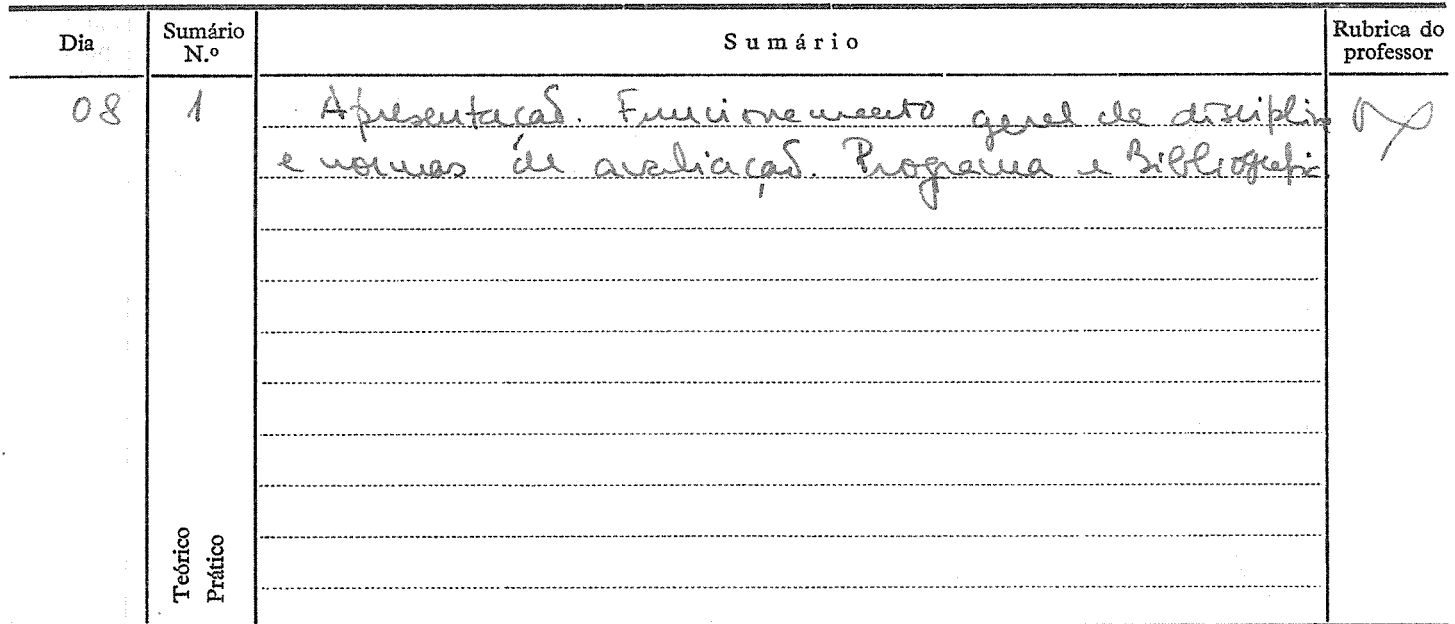 Dia
Sumário N.º
Sumário
Rubrica do professor
08
1
Apresentação. Funcionamento geral da disciplina
e normas de avaliação. Programa e Bibliografia
Teórico
Prático